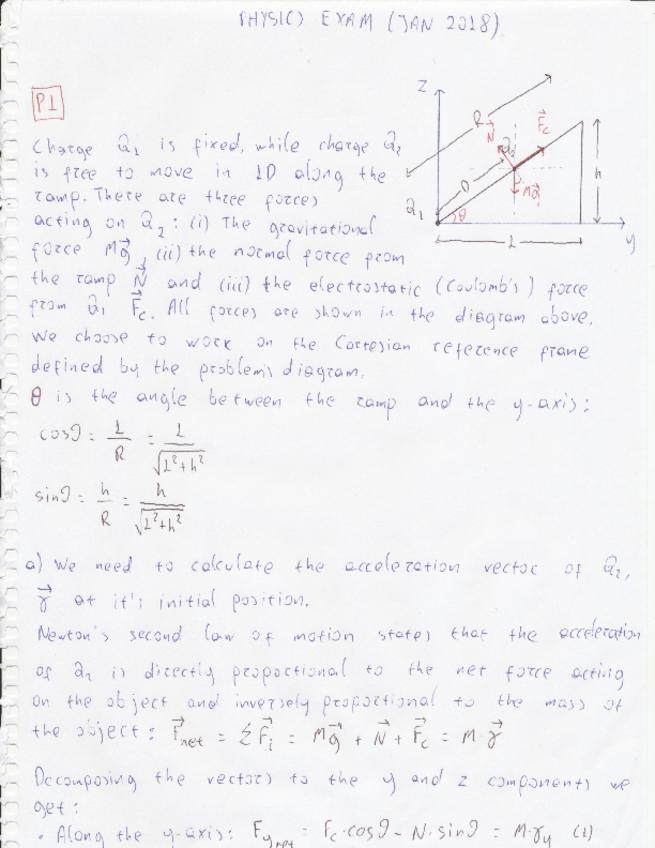 PHYSICS EXAM (JAN 2018)
P1
Charge Q₁ is fixed, while charge Q₂
is free to move in 1D along the
ramp. There are three forces
acting on Q₂: (i) The gravitational
force Mg⃗, (ii) the normal force from
the ramp N⃗ and (iii) the electrostatic (Coulomb's) force
from Q₁ F⃗c. All forces are shown in the diagram above.
We choose to work on the Cartesian reference frame
defined by the problem's diagram.
θ is the angle between the ramp and the y-axis:
cosθ = L/R = L/√(L²+h²)
sinθ = h/R = h/√(L²+h²)
a) We need to calculate the acceleration vector of Q₂,
γ⃗ at it's initial position.
Newton's second law of motion states that the acceleration
of Q₂ is directly proportional to the net force acting
on the object and inversely proportional to the mass of
the object: F⃗net = ΣF⃗i = Mg⃗ + N⃗ + F⃗c = M·γ⃗
Decomposing the vectors to the y and z components we
get:
• Along the y-axis: Fy,net = Fc·cosθ - N·sinθ = M·γy (1)
z
R
N⃗
Q₂
F⃗c
D
Mg⃗
h
Q₁
θ
L
y